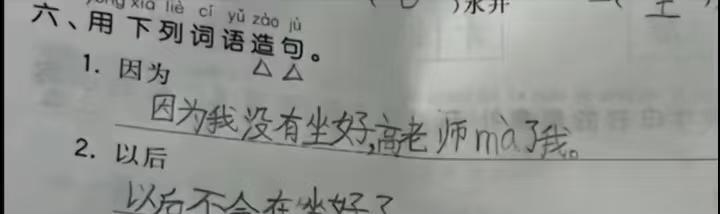 yòng xià liè cí yǔ zào jù
)水井 ( 土 )
六、用下列词语造句。
1. 因为
因为我没有坐好,高老师mà了我。
2. 以后
以后不会在坐好了